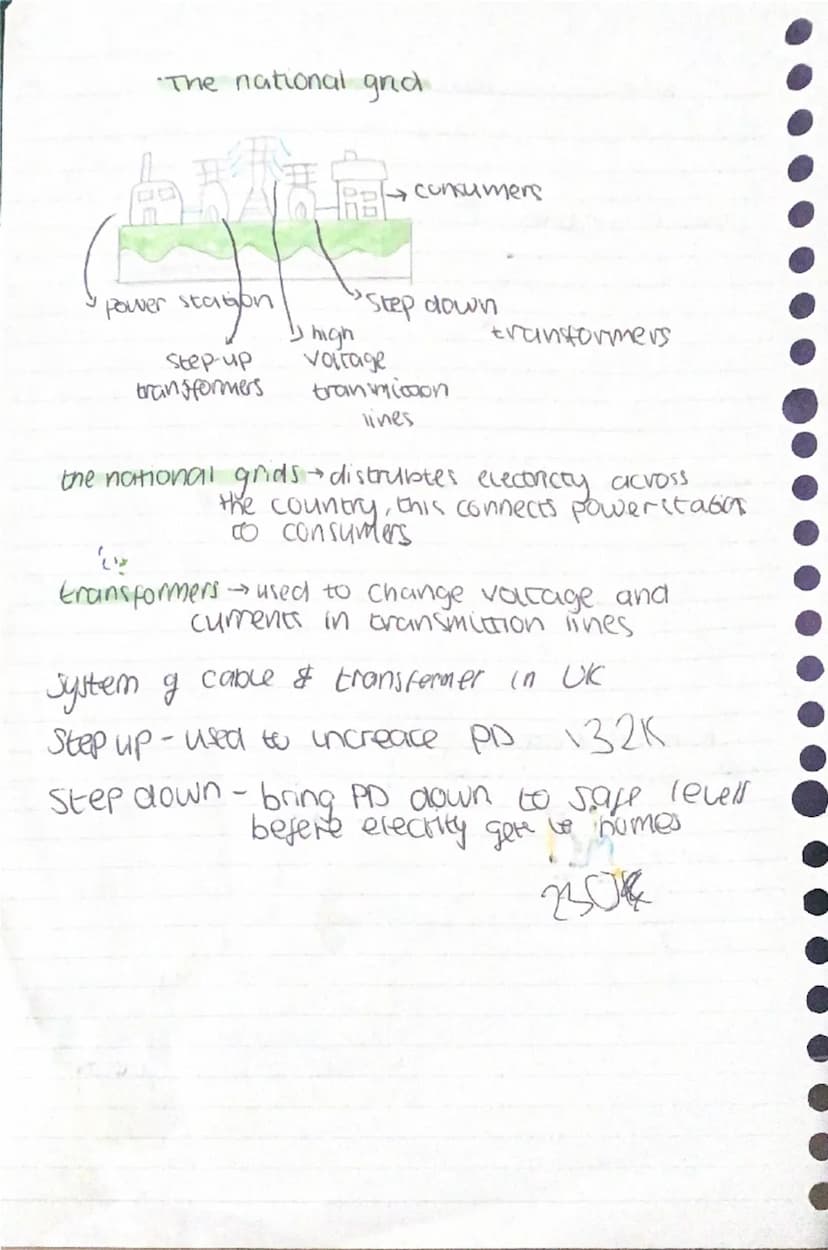 The national grid
→ consumers
power station
step down
transformers
step-up
transformers
high
voltage
tranmission
lines
the national grids → distrubtes electricty across
the country, this connects powerstation
to consumers
transformers → used to change voltage and
currents in transmittion lines
System of cable & transformer in UK
Step up - used to increace PD 132K
Step down - bring PD down to safe levels
before electrity gets to homes
230